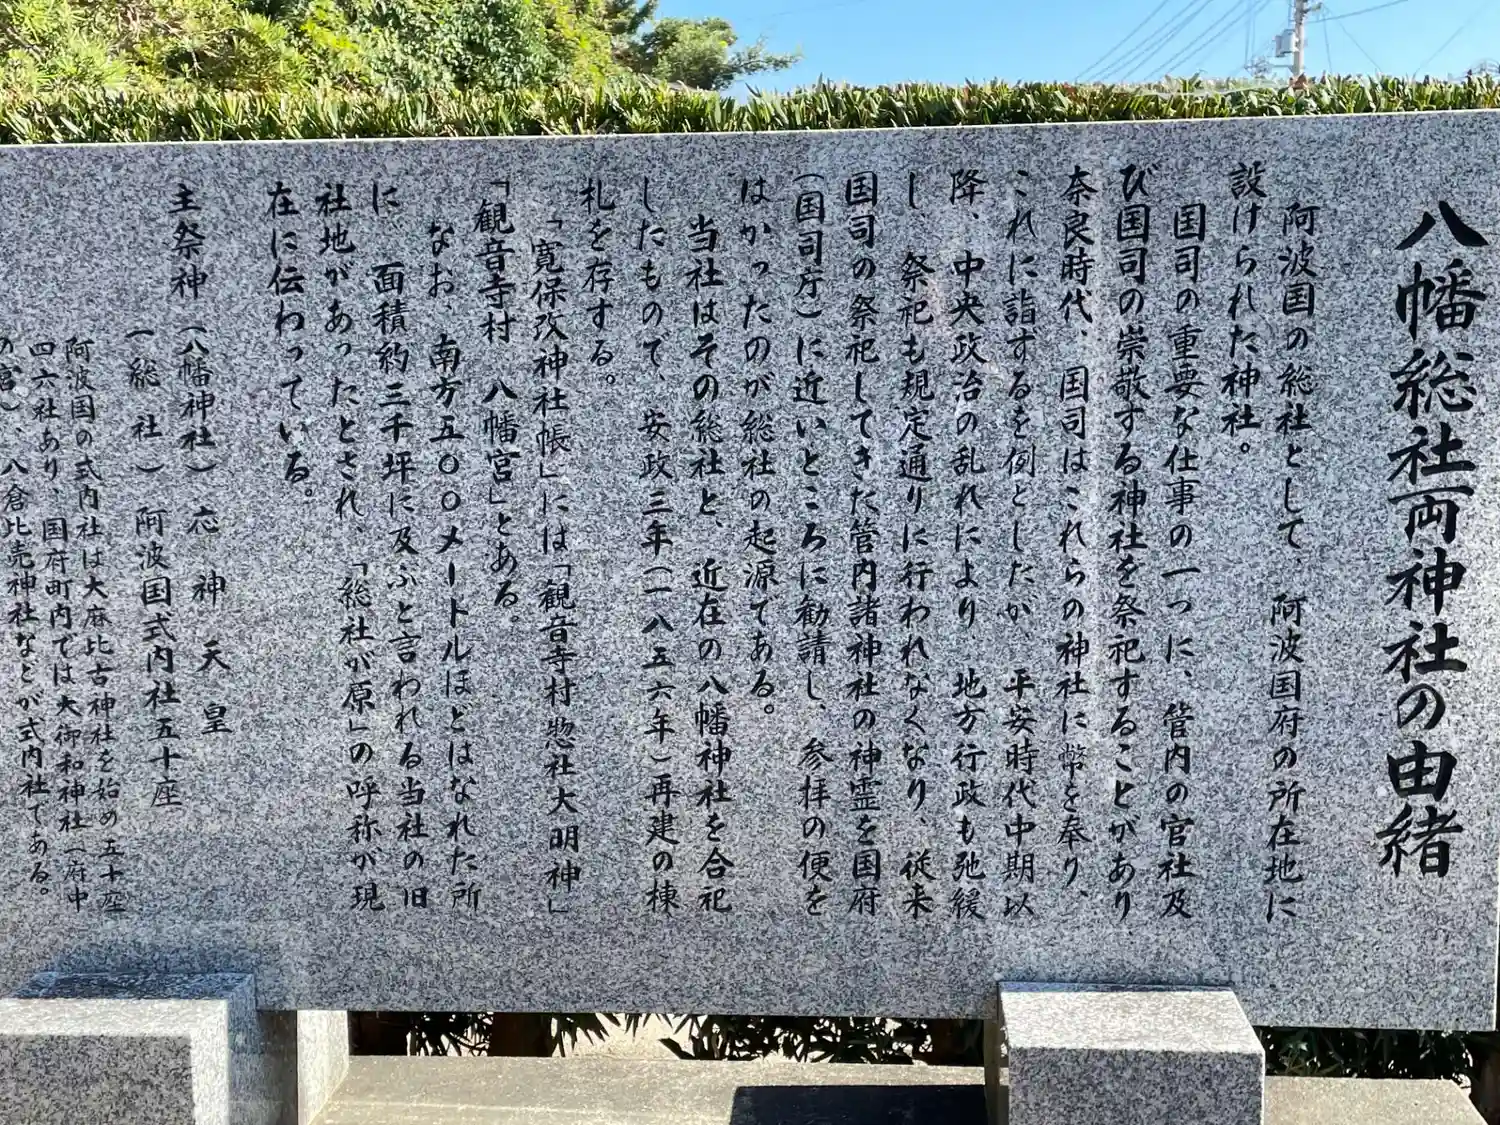 八幡総社両神社の由緒
阿波国の総社として、阿波国府の所在地に
設けられた神社。
国司の重要な仕事の一つに、管内の官社及
び国司の崇敬する神社を祭祀することがあり
奈良時代、国司はこれらの神社に幣を奉り、
これに詣ずるを例としたが、平安時代中期以
降、中央政治の乱れにより、地方行政も弛緩
し、祭祀も規定通りに行われなくなり、従来
国司の祭祀してきた管内諸神社の神霊を国府
(国司庁)に近いところに勧請し、参拝の便を
はかったのが総社の起源である。
当社はその総社と、近在の八幡神社を合祀
したもので、安政三年(一八五六年)再建の棟
札を存する。
「寛保改神社帳」には「観音寺村惣社大明神」
「観音寺村 八幡宮」とある。
なお、南方五〇〇メートルほどはなれた所
に、面積約三千坪に及ぶと言われる当社の旧
社地があったとされ、「総社が原」の呼称が現
在に伝わっている。
主祭神(八幡神社)応神天皇
(総社)阿波国式内社五十座
阿波国の式内社は大麻比古神社を始め五十座
四六社あり、国府町内では大御和神社(府中
の宮)、八倉比売神社などが式内社である。